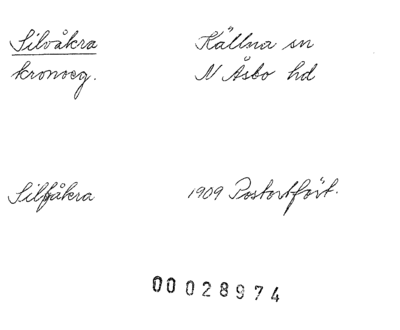 Silvåkra Källna sn
kronoeg. N Åsbo hd
Silfåkra 1909 Postortfört.
00028974